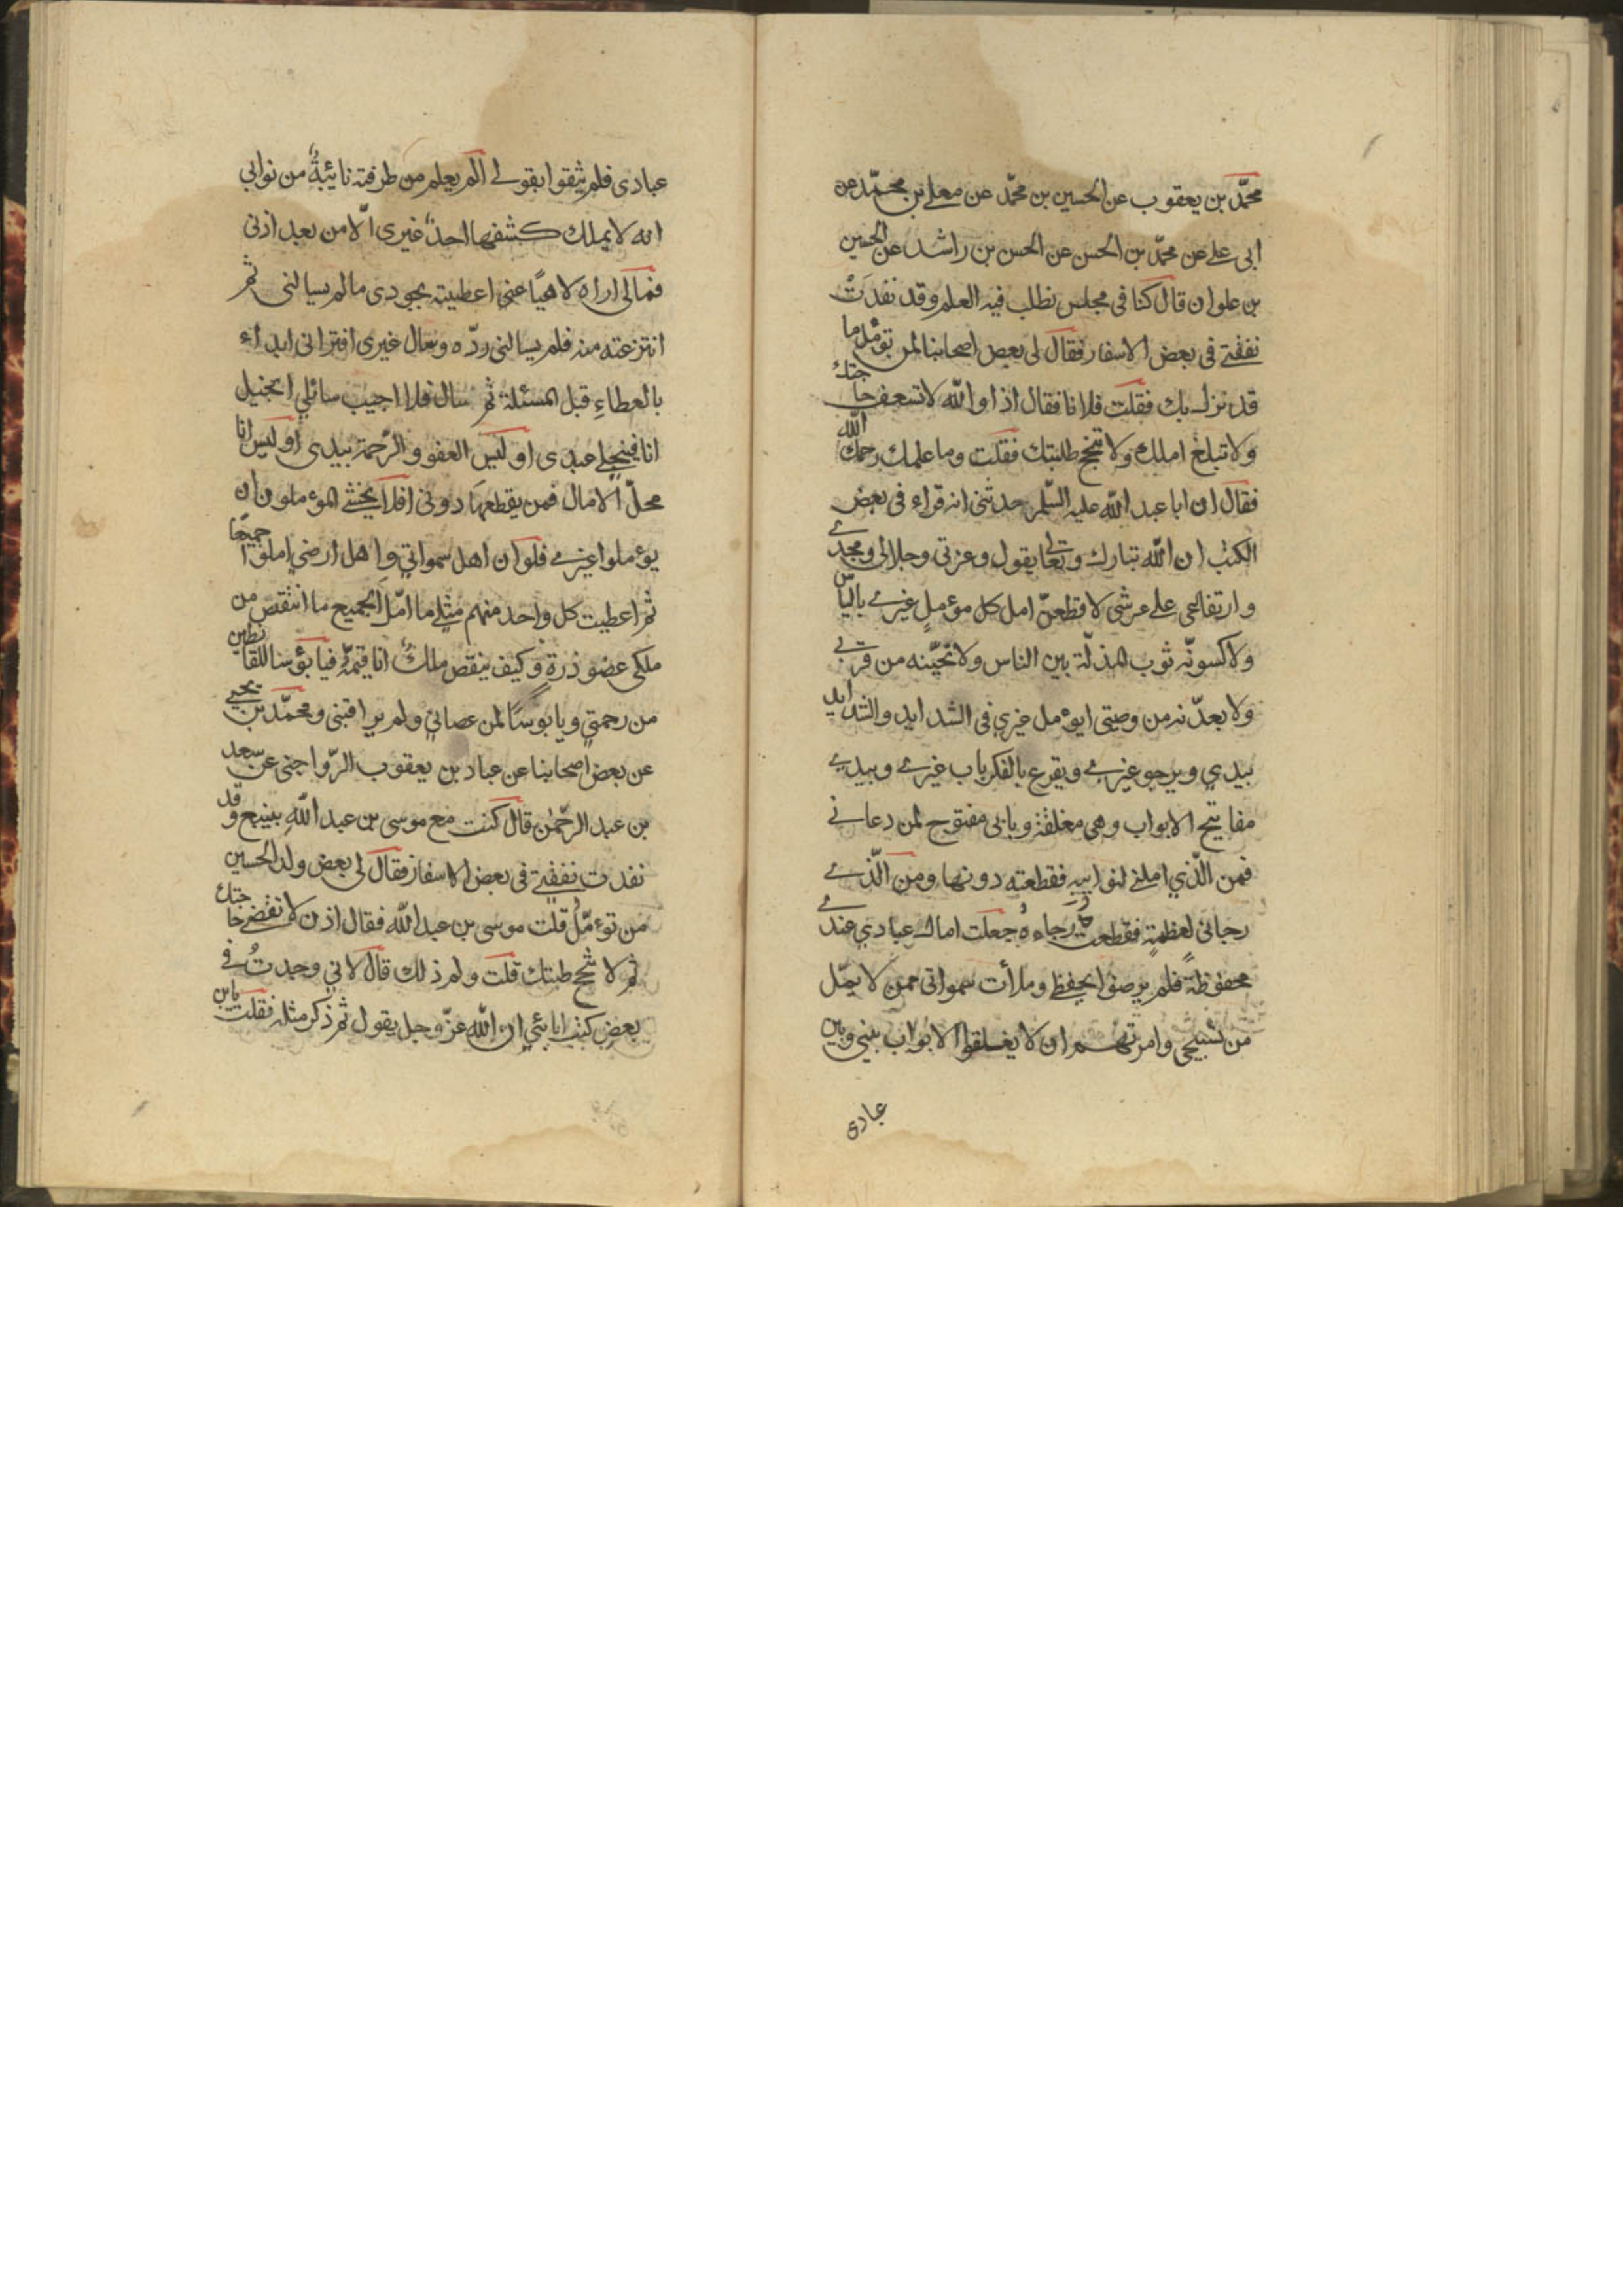 محمّد بن يعقوب عن الحسين بن محمّد عن معلى بن محمّد عن
ابى على عن محمّد بن الحسن عن الحسن بن راشد عن الحسين
بن علوان قال كنا فى مجلس نطلب فيه العلم وقد نفدَتْ
نفقتى فى بعض الاسفار فقال لى بعض اصحابنا لمن تؤمّل ما
قد نزل بك فقلت فلانا فقال اذا والله لا تسعف حاجتك
ولا تبلغ املك ولا تنجح طلبتك فقلت وما علمك رحمك الله
فقال ان ابا عبد الله عليه السّلم حدثنى انه قراء فى بعض
الكتب ان الله تبارك وتعالى يقول وعزتى وجلالى ومجدى
وارتفاعى على عرشى لاقطعنّ امل كل مؤمل غيرى بالياس
ولاكسونّه ثوب المذلّة بين الناس ولانحّينه من قربى
ولابعدّنه من وصيتى ايؤمل غيرى فى الشدايد والشدايد
بيدى ويرجو غيرى ويقرع بالفكر باب غيرى وبيدى
مفاتيح الابواب وهى مغلقة وبابى مفتوح لمن دعانى
فمن الّذي املنى لنوايبه فقطعته دونها ومن الّذى
رجانى لعظمة فقطعت رجاءه جعلت امال عبادي عندى
محفوظة فلم يرضوا بحفظى وملأت سمواتى ممن لا يملّ
من تسبيحى وامرتهم ان لا يغلقوا الابواب بينى وبين
عبادى
عبادى فلم يثقوا بقولى الم يعلم من طرقته نائبةٌ من نوايبى
انه لا يملك كشفها احدٌ غيرى الّا من بعد اذنى
فمالى اراه لاهيًا عنى اعطيته بجودى مالم يسالنى ثم
انتزعته منه فلم يسالنى ردّه وسال غيرى افترانى ابداء
بالعطاءِ قبل المسئلة ثم سال فلا اجيب سائلي ابخيل
انا فيبخلى عبدى اوليس العفو والرّحمة بيدى اوليس انا
محلّ الامال فمن يقطعها دونى افلا يخشى المؤملون ان
يؤملوا غيرى فلو ان اهل سمواتي واهل ارضي املوا جميعًا
ثم اعطيت كل واحد منهم مثل ما امّل الجميع ما انتقص من
ملكى عضو ذرة وكيف ينقص ملكٌ انا قيّمه فيا بؤسا للقانطين
من رحمتي ويا بوسًا لمن عصانى ولم يراقبنى ومحمّد بن يحيى
عن بعض اصحابنا عن عباد بن يعقوب الرّواجنى عن سعد
بن عبد الرّحمٰن قال كنت مع موسى بن عبد الله بينبع وقد
نفدت نفقتى فى بعض الاسفار فقال لى بعض ولد الحسين
من تؤمّل قلت موسى بن عبد الله فقال اذن لا تقضى حاجتك
ثم لا تنجح طلبتك قلت ولم ذلك قال لانى وجدتُ فى
بعض كتب ابائي ان الله عزّ وجل يقول ثم ذكر مثله فقلت يابن